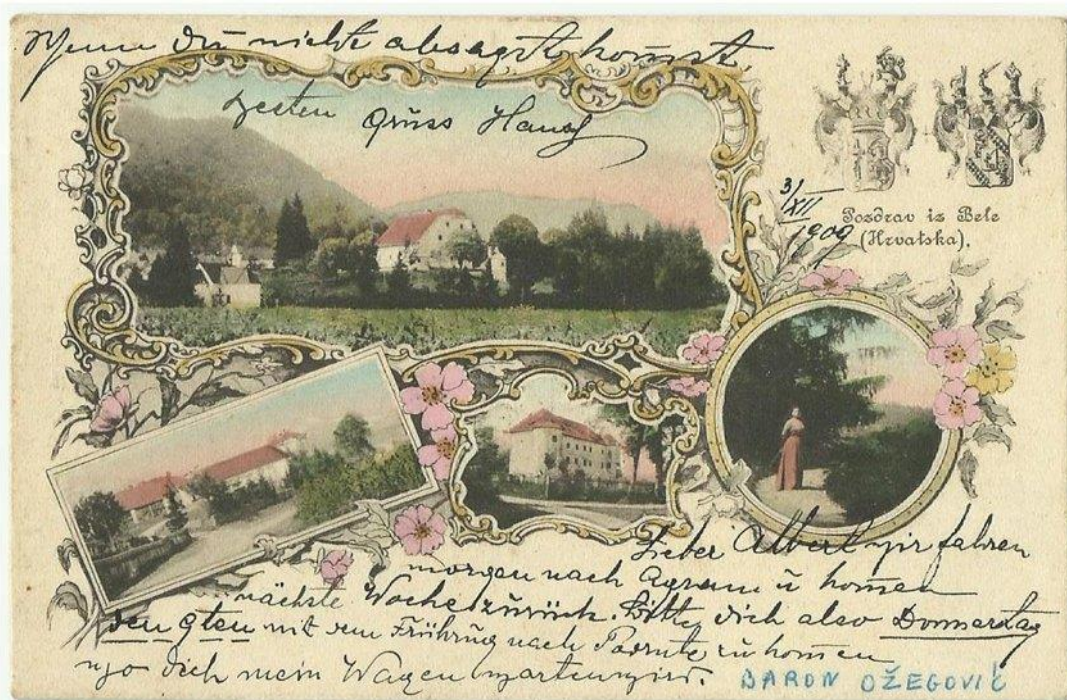 Wenn du nicht absagst kommst.
besten Gruss Hans
3/XII
1909
Pozdrav iz Bele
(Hrvatska).
Lieber Albert wir fahren
morgen nach Agram u kom̄en
nächste Woche zurück. Bitte dich also Donnerstag
den 9ten mit dem Frühzug nach zu kom̄en
wo dich mein Wagen warten wird.
BARON OŽEGOVIĆ